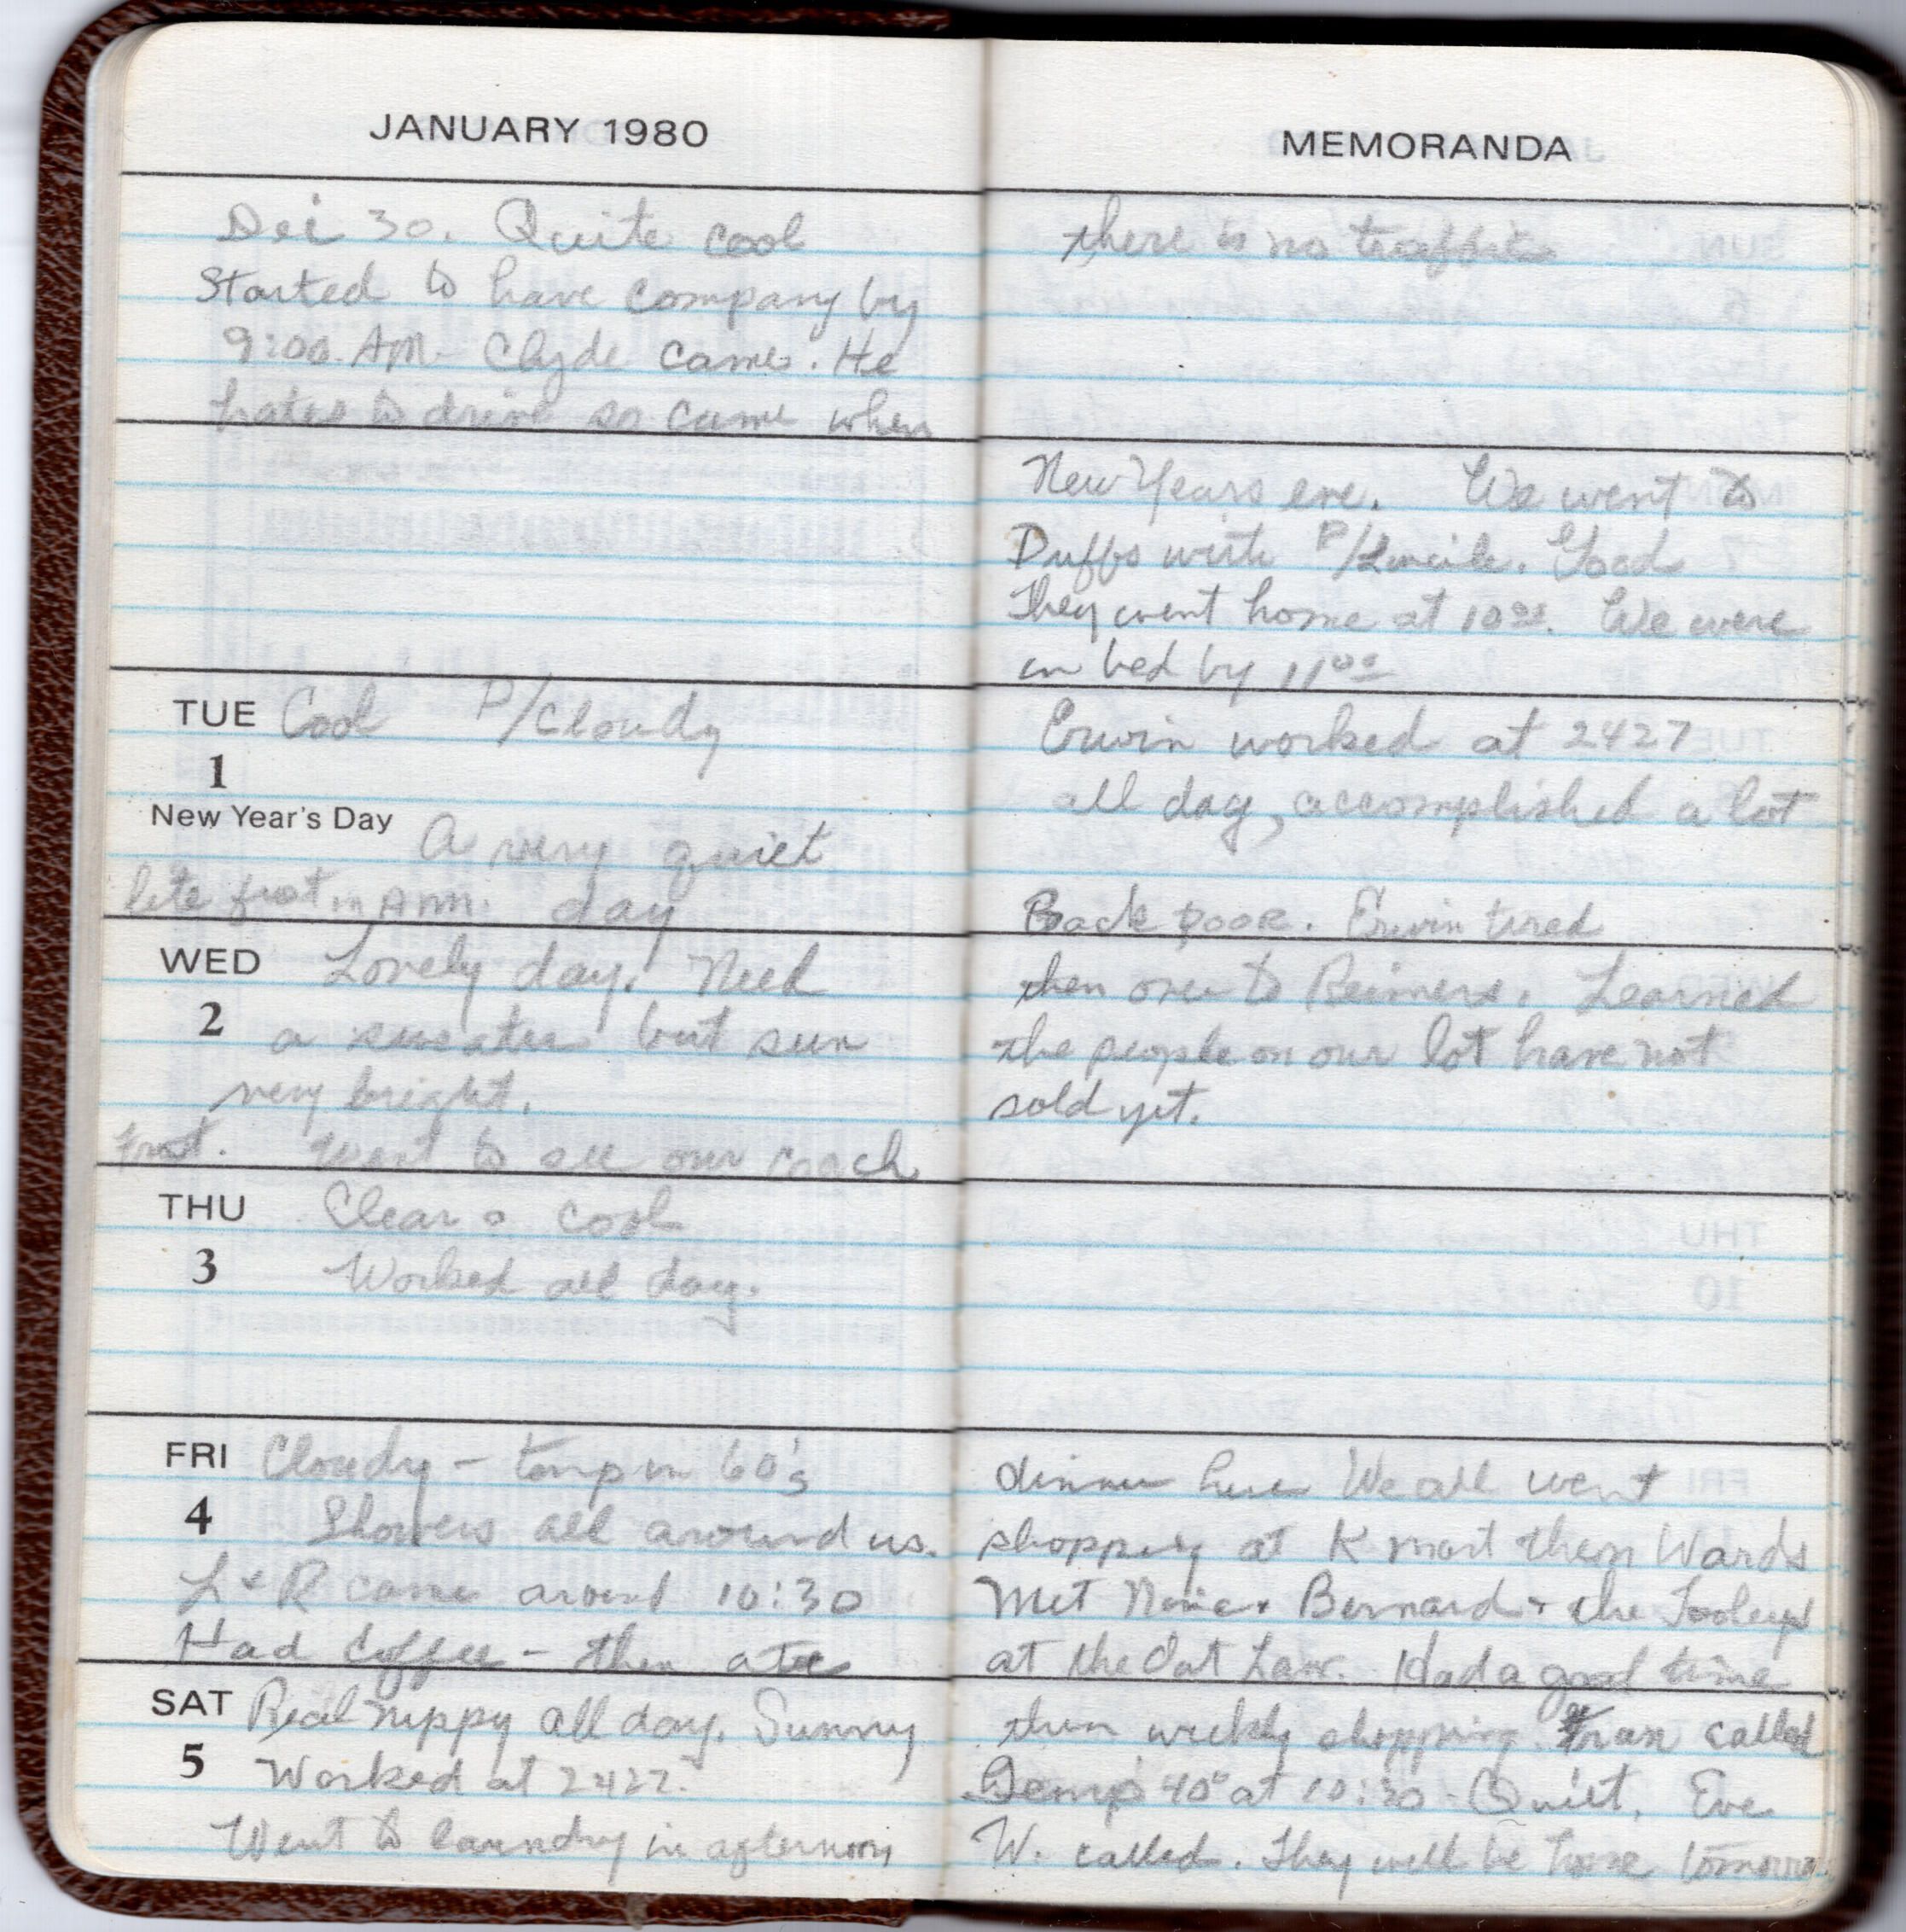 JANUARY 1980
Dec 30. Quite cool
Started to have company by
9:00 AM - Clyde came. He
hates to drive so came when
TUE Cool P/Cloudy
1
New Year's Day A very quiet
lite frost in AM. day
WED Lovely day. Need
2 a sweater but sun
very bright.
Frost. Went to see our coach
THU Clear & cool
3 Worked all day.
FRI Cloudy - temp in 60's
4 Showers all around us.
L & R came around 10:30
Had Coffee - then ate
SAT Real nippy all day. Sunny
5 Worked at 2427.
Went to laundry in afternoon
MEMORANDA
there is no traffic
New Years eve. We went to
Duffs with P/Lucile. Good
They went home at 10 00. We were
in bed by 11 00
Erwin worked at 2427
all day, accomplished a lot
Back poor. Erwin tired
then over to Reimers. Learned
the people on our lot have not
sold yet.
dinner here We all went
shopping at K mart then Wards
Met & Bernard & the Tooleys
at the Oat Law. Had a good time
then weekly shopping. Fran called
Temp 40° at 10:30 - Quiet. Eve
W. called. They will be home tomorro